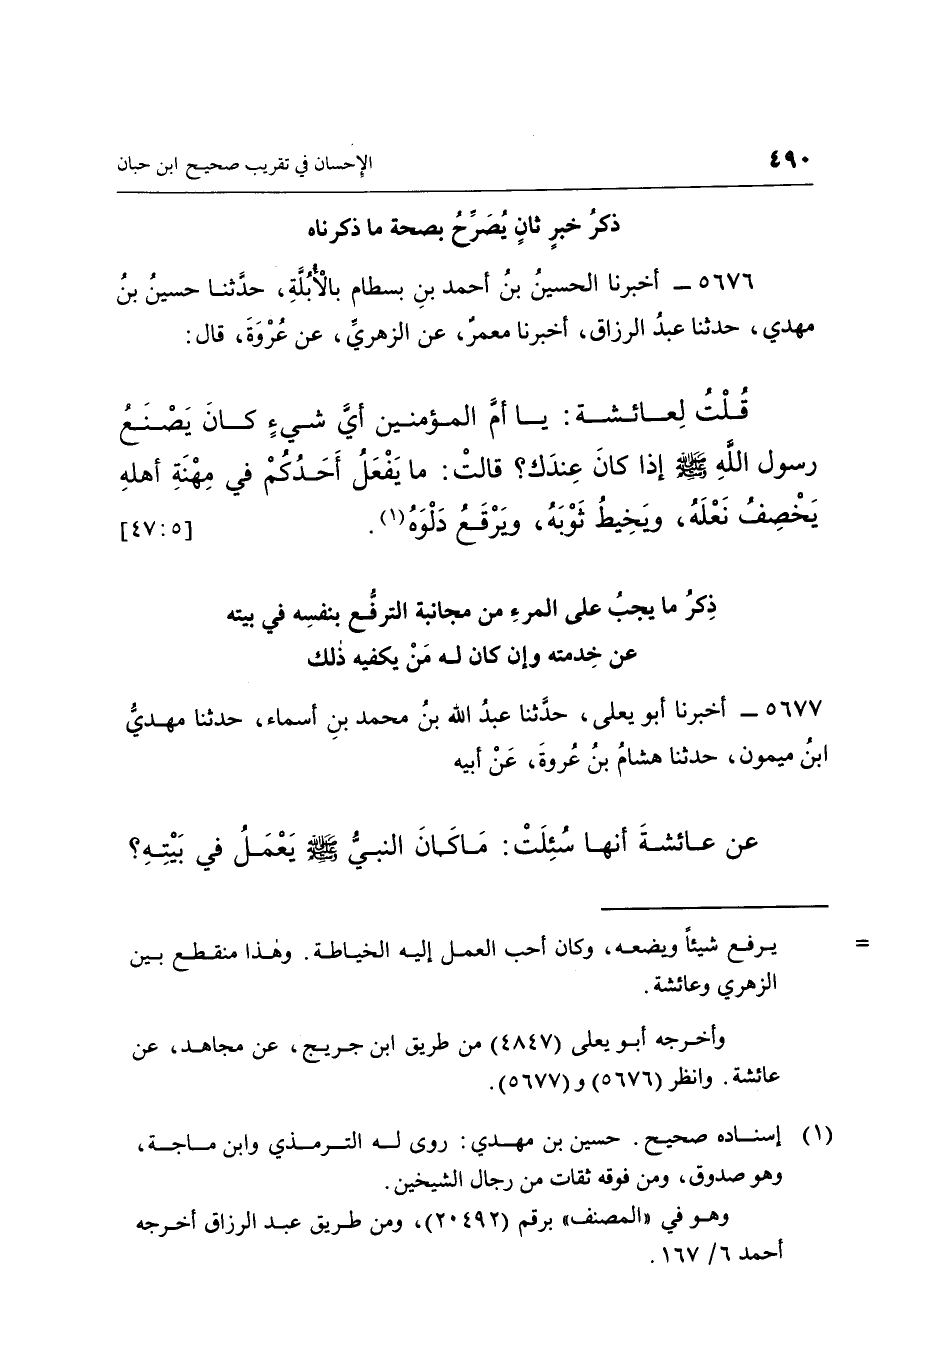 ٤٩٠ الإحسان في تقريب صحيح ابن حبان
ذكرُ خبرٍ ثانٍ يُصَرِّحُ بصحة ما ذكرناه
٥٦٧٦ ــ أخبرنا الحسينُ بنُ أحمد بنِ بسطام بالْأُبُلَّةِ، حدَّثنا حسينُ بنُ
مهدي، حدثنا عبدُ الرزاق، أخبرنا معمرٌ، عن الزهريِّ، عن عُرْوَةَ، قال:
قُلْتُ لِعائشة: يا أمَّ المؤمنين أيَّ شيءٍ كانَ يَصْنَعُ
رسول اللَّهِ ﷺ إذا كانَ عِندَك؟ قالتْ: ما يَفْعَلُ أَحَدُكُمْ في مِهْنَةِ أهلهِ
يَخْصِفُ نَعْلَهُ، ويَخِيطُ ثَوْبَهُ، ويَرْقَعُ دَلْوَهُ(١). [٤٧:٥]
ذِكرُ ما يجبُ على المرءِ من مجانبة الترفُّع بنفسِه في بيته
عن خِدمته وإن كان له مَنْ يكفيه ذٰلك
٥٦٧٧ ــ أخبرنا أبو يعلى، حدَّثنا عبدُ الله بنُ محمد بنِ أسماء، حدثنا مهديُّ
ابنُ ميمون، حدثنا هشامُ بنُ عُروةَ، عَنْ أبيه
عن عائشةَ أنها سُئِلَتْ: مَا كَانَ النبيُّ ﷺ يَعْمَلُ في بَيْتِهِ؟
= يرفع شيئاً ويضعه، وكان أحب العمل إليه الخياطة. وهٰذا منقطع بين
الزهري وعائشة.
وأخرجه أبو يعلى (٤٨٤٧) من طريق ابن جريج، عن مجاهد، عن
عائشة. وانظر (٥٦٧٦) و(٥٦٧٧).
(١) إسناده صحيح. حسين بن مهدي: روى له الترمذي وابن ماجة،
وهو صدوق، ومن فوقه ثقات من رجال الشيخين.
وهو في «المصنف» برقم (٢٠٤٩٢)، ومن طريق عبد الرزاق أخرجه
أحمد ٦/ ١٦٧.